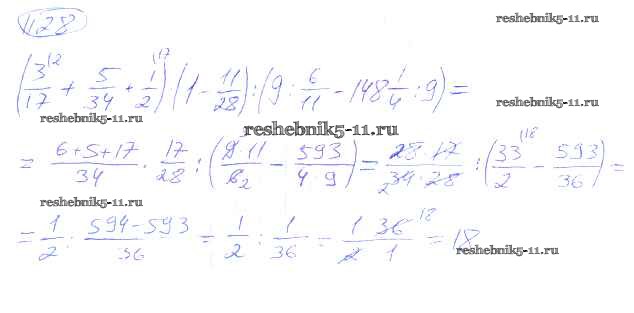 1128
reshebnik5-11.ru
(3/17 + 5/34 + 1/2) · (1 - 11/28) : (9 : 6/11 - 148 1/4 : 9) =
reshebnik5-11.ru
reshebnik5-11.ru
reshebnik5-11.ru
= (6+5+17)/34 · 17/28 : (9·11/6 2 - 593/4·9) = 28·17/2 34·28 : (33/2 - 593/36) =
reshebnik5-11.ru
= 1/2 : (594-593)/36 = 1/2 : 1/36 = 1 36/2 1 = 18
reshebnik5-11.ru
reshebnik5-11.ru